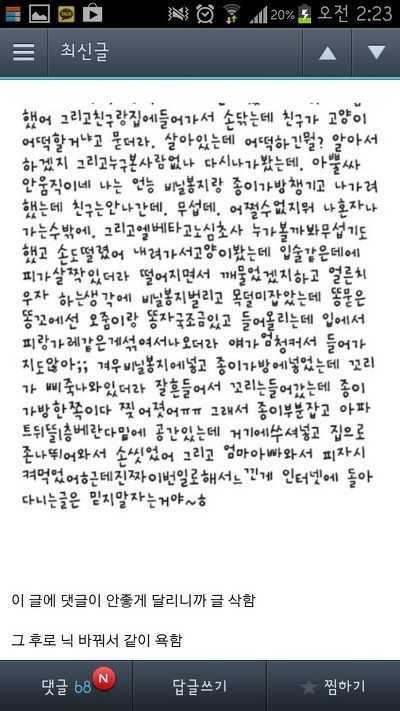 20% 오전 2:23
최신글
했어 그리고친구랑집에들어가서 손닦는데 친구가 고양이
어떡할거냐고 묻더라. 살아있는데 어떡하긴뭘? 알아서
하겠지 그리고누구본사람없나 다시나가봤는데. 아뿔싸
안움직이네 나는 언능 비닐봉지랑 종이가방챙기고 나가려
했는데 친구는안나간데. 무섭데. 어쩔수없지뭐 나혼자나
가는수밖에. 그리고엘베타고노심초사 누가볼까봐무섭기도
했고 손도떨렸어 내려가서고양이봤는데 입술같은데에
피가살짝있더라 떨어지면서 깨물었겠지하고 얼른치
우자 하는생각에 비닐봉지벌리고 목덜미잡았는데 똥문은
똥꼬에선 오줌이랑 똥자국조금있고 들어올리는데 입에서
피랑가레같은게섞여서나오더라 얘가엄청커서 들어가
지도않아;; 겨우비닐봉지에넣고 종이가방에넣었는데 꼬리
가 삐죽나와있더라 잘흔들어서 꼬리는들어갔는데 종이
가방한쪽이다 찢어졌어ㅠㅠ 그래서 종이부분잡고 아파
트뒤뜰1층베란다밑에 공간있는데 거기에쑤셔넣고 집으로
존나뛰어와서 손씻었어 그리고 엄마아빠와서 피자시
켜먹었어ㅎ근데진짜이번일로해서느낀게 인터넷에 돌아
다니는글은 믿지말자는거야~ㅎ
이 글에 댓글이 안좋게 달리니까 글 삭함
그 후로 닉 바꿔서 같이 욕함
댓글 68 N 답글쓰기 찜하기